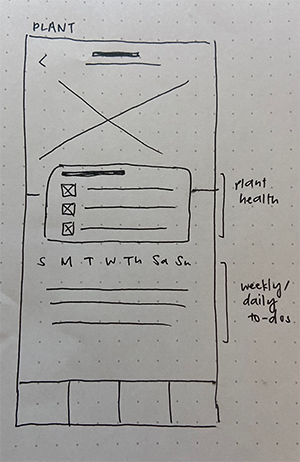 PLANT
plant
health
S M T W Th Sa Su
weekly/
daily
to-dos